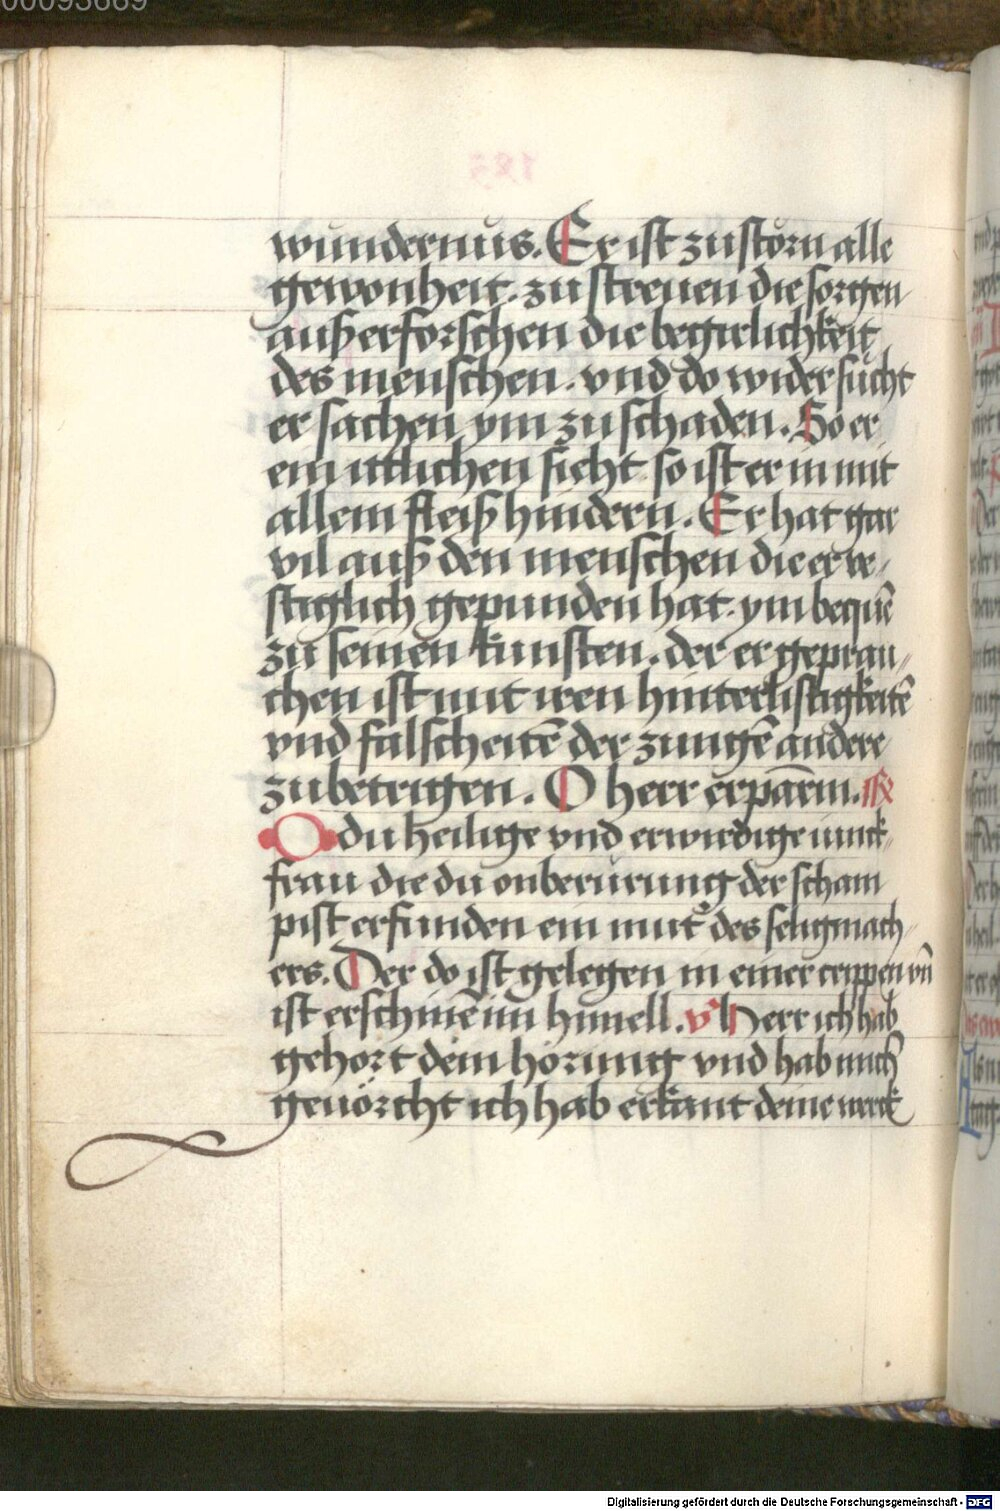 00093669
wundernus. Er ist zustörn alle
gewonheit. zu streuen die sorgen
auß erforschen die begirlichkeit
des menschen. vnd do wider sucht
er sachen ym zu schaden. So er
ein ittlichen sicht so ist er in mit
allem fleiß hindern. Er hat gar
vil auß den menschen die er ve/
stiglich gepunden hat. ym bequē
zu seinen kunsten. der er geprau//
chen ist mit iren hinterlistigkeitē
vnd falscheitē der zungē andere
zubetrigen. O herr erpārm. R
O du heilige vnd erwirdige iunck/
frau die du onberürung der scham
pist erfunden ein mut' des seligmach/
ers. Der do ist gelegen in einer crippen vñ
ist erschinē im himell. v' Herr ich hab
gehört dein hörung vnd hab mich
gevörcht ich hab erkant deine werck
Digitalisierung gefördert durch die Deutsche Forschungsgemeinschaft - DFG